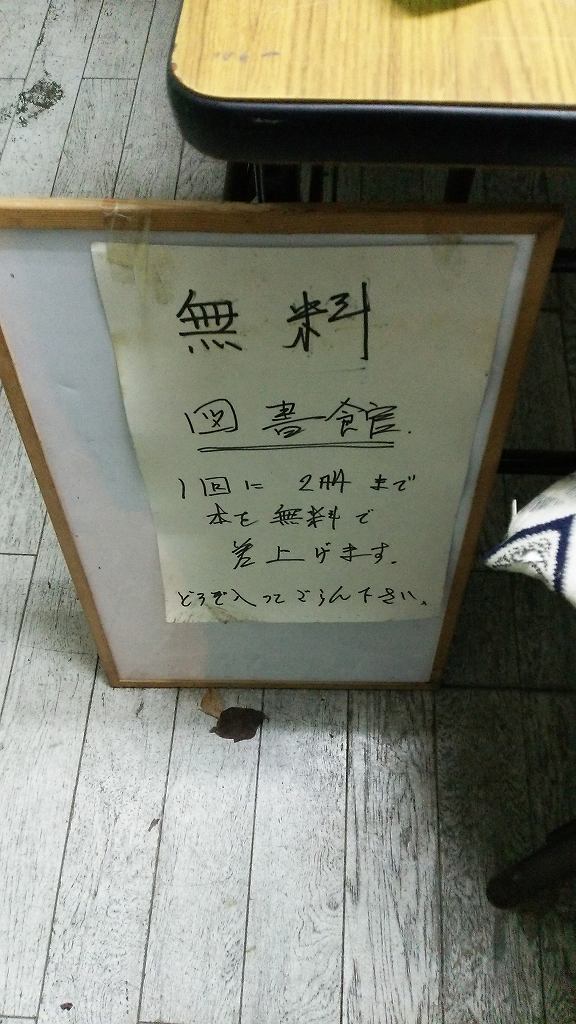 無料
図書館.
1回に 2冊 まで
本を 無料で
差上げます.
どうぞ入ってごらん下さい.